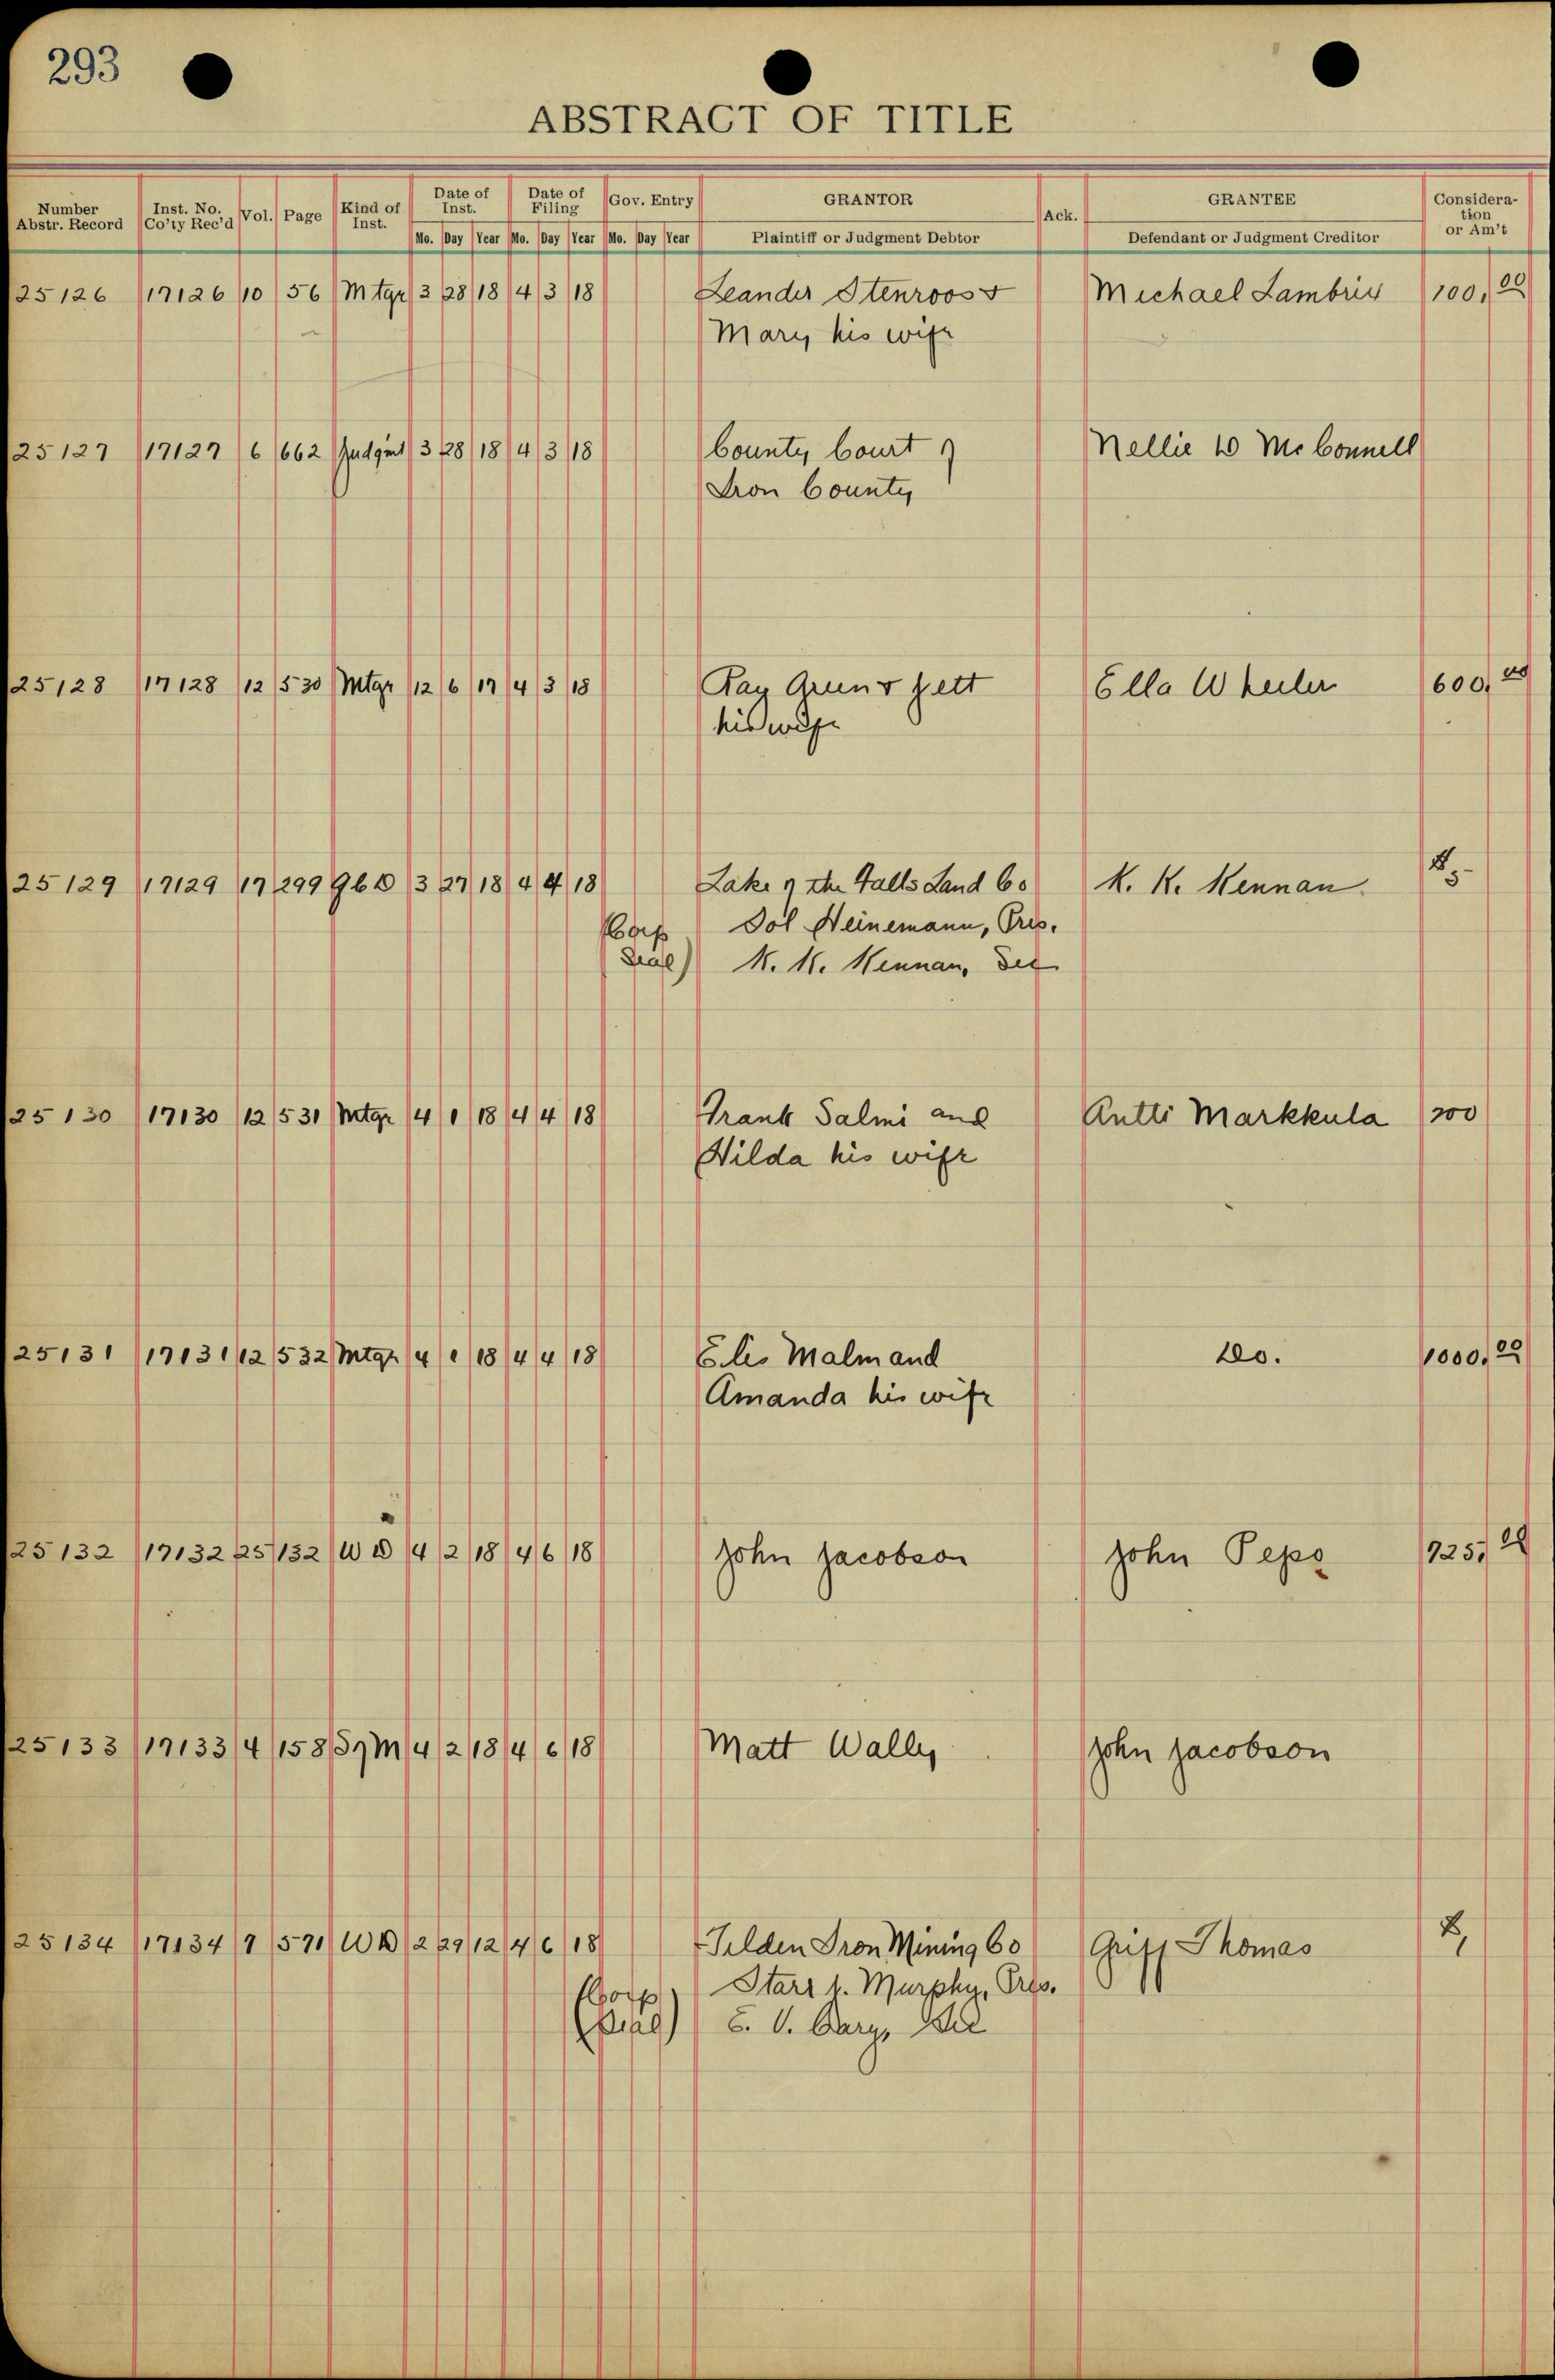 293
ABSTRACT OF TITLE
Number Abstr. Record Inst. No. Co'ty Rec'd Vol. Page Kind of Inst. Date of Inst. Date of Filing Gov. Entry GRANTOR Ack. GRANTEE Considera-tion or Am't
Mo. Day Year Mo. Day Year Mo. Day Year Plaintiff or Judgment Debtor Defendant or Judgment Creditor
25126 17126 10 56 Mtge 3 28 18 4 3 18 Leander Stenroos & Michael Lambrix 100,00
Mary his wife
25127 17127 6 662 Judgmt 3 28 18 4 3 18 County Court of Nellie W McConnell
Iron County
25128 17128 12 530 Mtge 12 6 17 4 3 18 Ray & Jett Ella Wheeler 600,00
his wife
25129 17129 17 299 QCD 3 27 18 4 4 18 Lake of the Falls Land Co K. K. Kennan $5-
(Corp Sol Heinemann, Pres.
Seal) K. K. Kennan, Sec
25130 17130 12 531 Mtge 4 1 18 4 4 18 Frank Salmi and Antti Markkula 200
Hilda his wife
25131 17131 12 532 Mtge 4 1 18 4 4 18 Eles Malm and Do. 1000,00
Amanda his wife
25132 17132 25 132 WD 4 2 18 4 6 18 John Jacobson John Pepo 725,00
25133 17133 4 158 S of M 4 2 18 4 6 18 Matt Wally John Jacobson
25134 17134 7 571 WD 2 29 12 4 6 18 Tilden Iron Mining Co Griff Thomas $1
(Corp) Starr J. Murphy, Pres.
(Seal) E. V. Cary, Sec